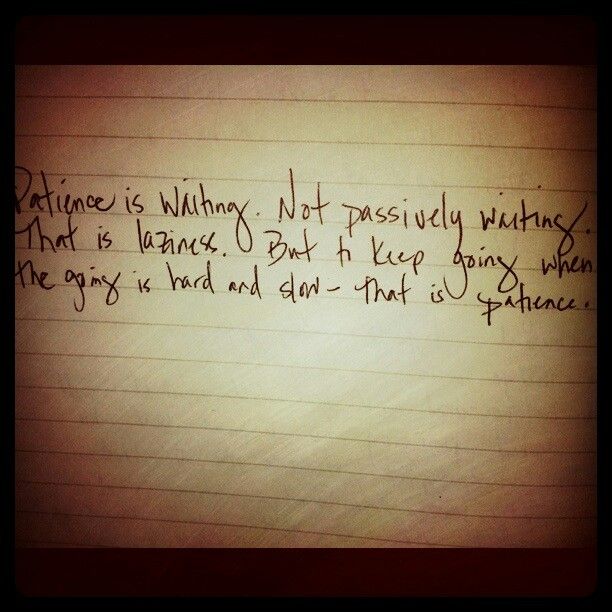 Patience is waiting. Not passively waiting.
That is laziness. But to keep going when
the going is hard and slow- that is patience.